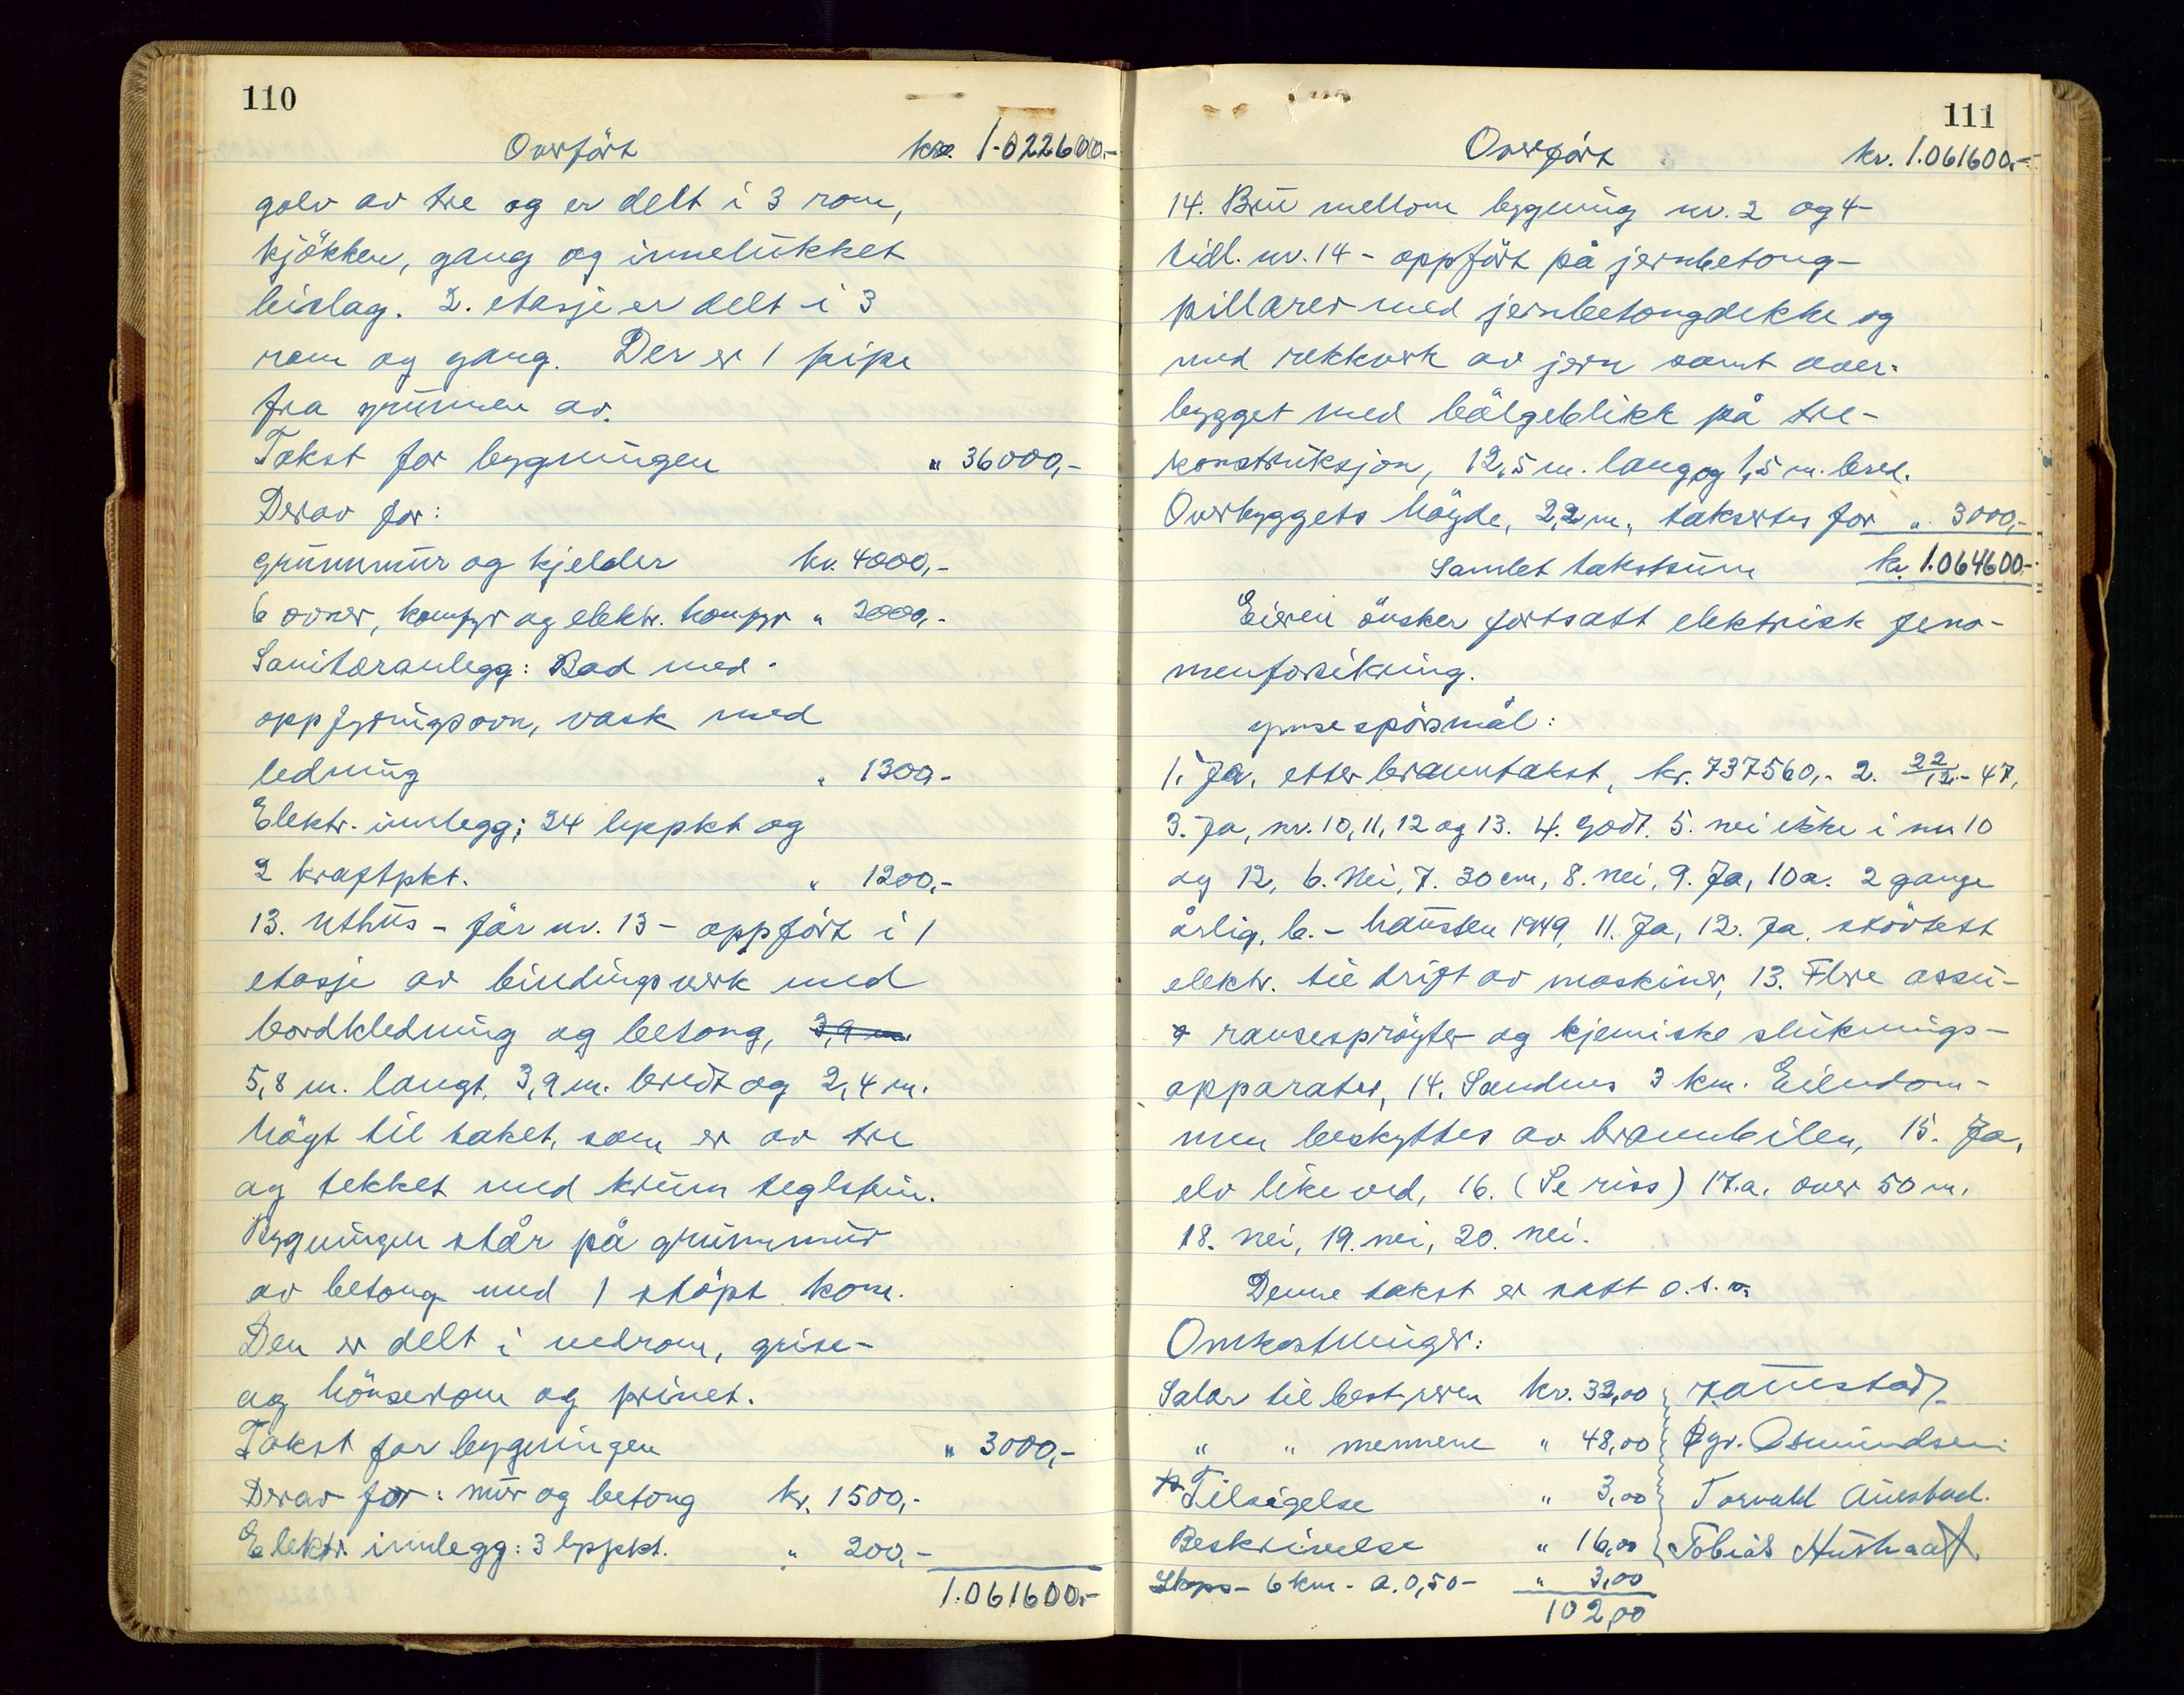 110
Overført kr. 1.022600.-
golv av tre og er delt i 3 rom,
kjökken, gang og innelukket
bislag. 2. etasje er delt i 3
rom og gang. Der er 1 pipe
fra grunnen av.
Takst for bygningen " 36000,-
Derav for:
grunnmur og kjelder kr. 4000,-
6 ovner, komfyr og elektr. komfyr " 2000,-
Sanitæranlegg: Bad med
oppfyringsovn, vask med
ledning " 1300,-
Elektr. innlegg; 24 lyspkt og
2 kraftpkt. " 1200,-
13. Uthus - før nr. 13 - oppført i 1
etasje av bindingsverk med
bordkledning og betong, 3,9 m.
5,8 m. langt, 3,9 m. bredt og 2,4 m.
högt til taket, som er av tre
og tekket med krum teglstein.
Bygningen står på grunnmur
av betong med 1 støpt kom.
Den er delt i vedrom, grise-
og hönserom og privet.
Takst for bygningen " 3000,-
Derav for: mur og betong kr. 1500,-
Elektr. innlegg: 3 lyspkt. " 200,-
1.061600.-
111
Overført kr. 1.061600.-
14. Bru mellom bygning nr. 2 og 4 -
tidl. nr. 14 - oppført på jernbetong-
pillarer med jernbetongdekke og
med rekkverk av jern samt over-
bygget med bölgeblikk på tre-
konstruksjon, 12,5 m. lang og 1,5 m. bred.
Overbyggets höyde, 2,2 m., taksertes for " 3000,-
Samlet takstsum kr. 1.064600.-
Eieren önsker fortsatt elektrisk feno-
menforsikring.
spørsmål:
1. Ja, etter branntakst, kr. 737560,- 2. 22/12 - 47,
3. Ja, nr. 10, 11, 12 og 13. 4. Godt. 5. nei ikke i nr 10
og 12, 6. Nei, 7. 30 cm, 8. nei, 9. Ja, 10a. 2 gange
årlig, b. - hausten 1949, 11. Ja, 12. Ja. störtest
elektr. til drift av maskiner, 13. Flere assu-
ransespröyter og kjemiske sluknings-
apparater, 14. Sandnes 3 km. Eiendom-
men beskyttes av brannbilen, 15. Ja,
elv like ved, 16. (Se riss) 17.a. over 50 m.
18. nei, 19. nei, 20. nei.
Denne takst er satt o.s.v.
Omkostninger:
Salær til bestyreren kr. 32,00
" " mennene " 48,00 Asmundsen
Tilsigelse " 3,00 Torvald Auestad.
Beskrivelse " 16,00 Tobias
Skyss - 6 km - a. 0,50 - " 3,00
102,00